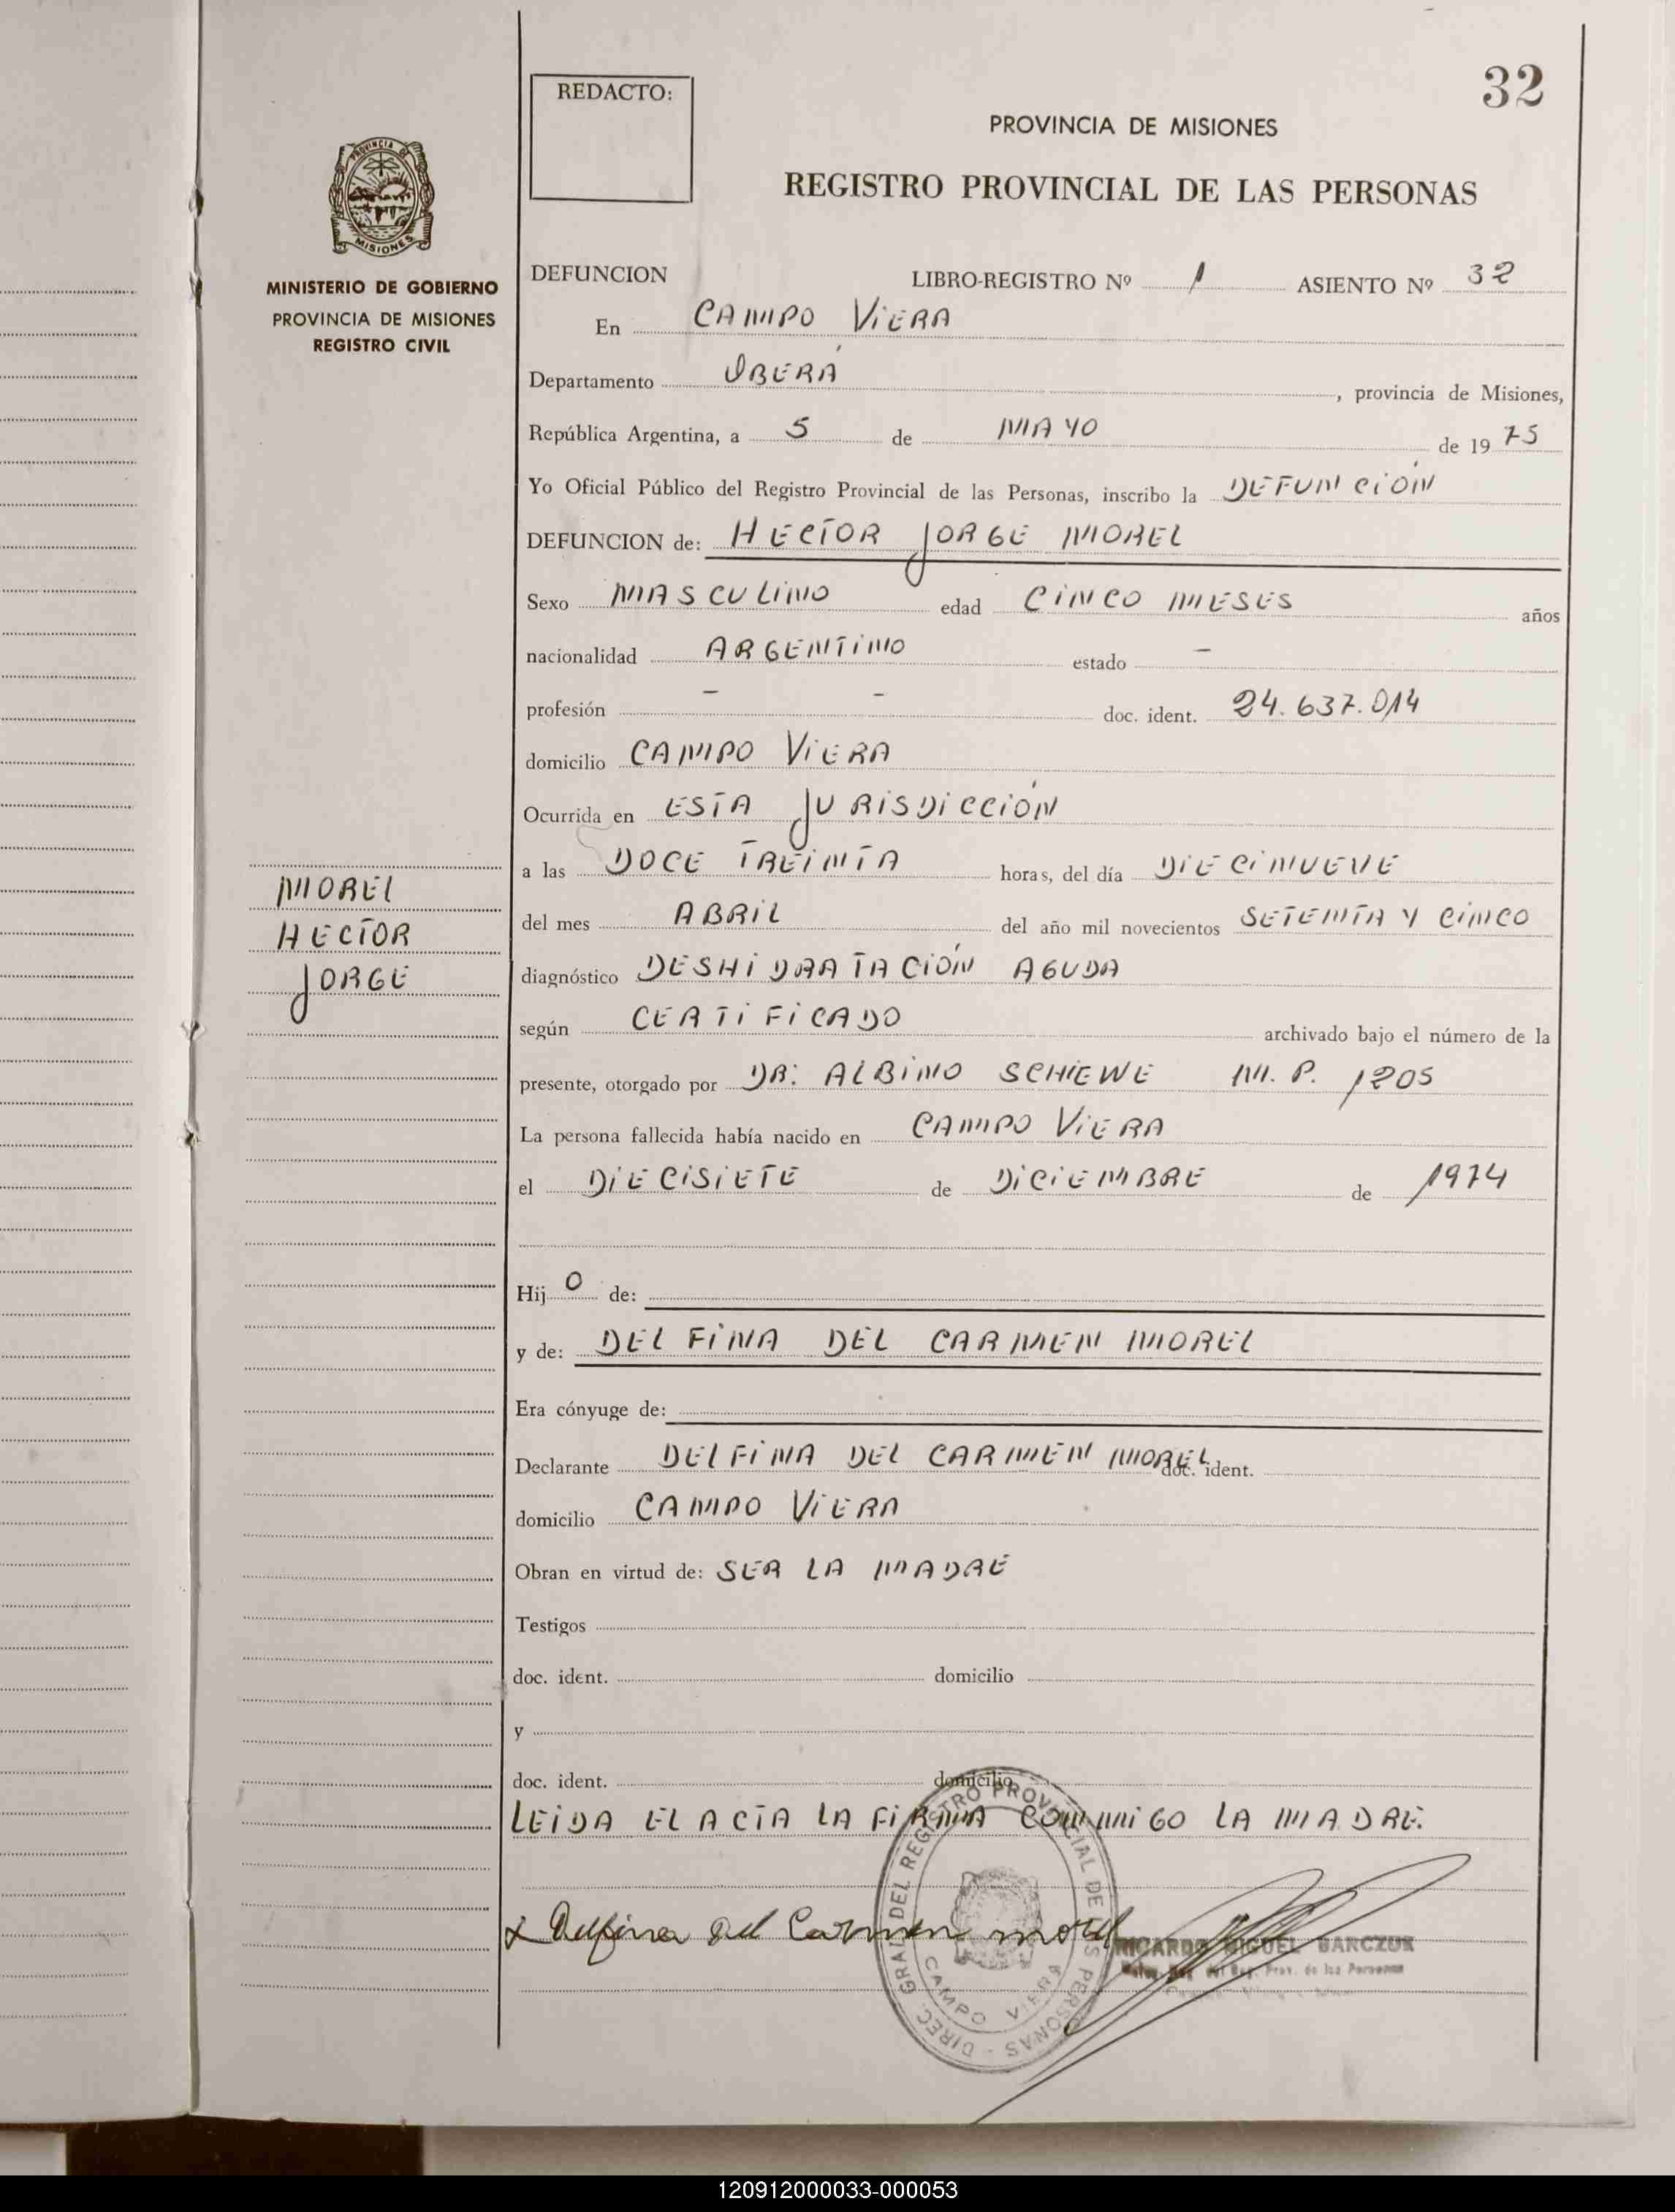 32
REDACTO:
PROVINCIA DE MISIONES
REGISTRO PROVINCIAL DE LAS PERSONAS
PROVINCIA DE
MISIONES
MINISTERIO DE GOBIERNO
PROVINCIA DE MISIONES
REGISTRO CIVIL
DEFUNCION LIBRO-REGISTRO Nº 1 ASIENTO Nº 32
En CAMPO VIERA
Departamento OBERÁ, provincia de Misiones,
República Argentina, a 5 de MAYO de 1975
Yo Oficial Público del Registro Provincial de las Personas, inscribo la DEFUNCIÓN
DEFUNCION de: HECTOR JORGE MOREL
Sexo MASCULINO edad CINCO MESES años
nacionalidad ARGENTINO estado -
profesión - - doc. ident. 24.637.014
domicilio CAMPO VIERA
Ocurrida en ESTA JURISDICCIÓN
a las DOCE TREINTA horas, del día DIECINUEVE
del mes ABRIL del año mil novecientos SETENTA Y CINCO
diagnóstico DESHIDRATACIÓN AGUDA
según CERTIFICADO archivado bajo el número de la
presente, otorgado por DR: ALBINO SCHIEWE M. P. 1205
La persona fallecida había nacido en CAMPO VIERA
el DIECISIETE de DICIEMBRE de 1974
MOREL
HECTOR
JORGE
Hijo de:
y de: DELFINA DEL CARMEN MOREL
Era cónyuge de:
Declarante DELFINA DEL CARMEN MOREL doc. ident.
domicilio CAMPO VIERA
Obran en virtud de: SER LA MADRE
Testigos
doc. ident. domicilio
y
doc. ident. domicilio
LEIDA EL ACTA LA FIRMA CONMIGO LA MADRE.
x Delfina del Carmen morel
DIREC. GRAL DEL REGISTRO PROVINCIAL DE LAS PERSONAS -
CAMPO VIERA
RICARDO MIGUEL BARCZUK
Prov. de las Personas
120912000033-000053